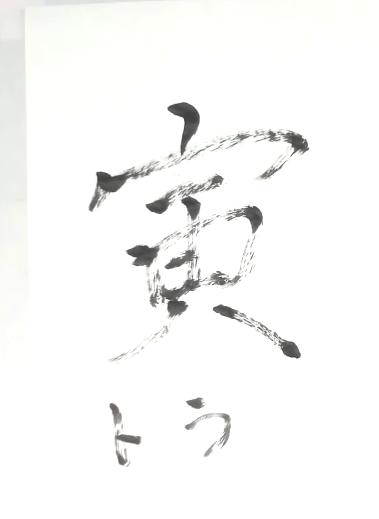 寅
トラ